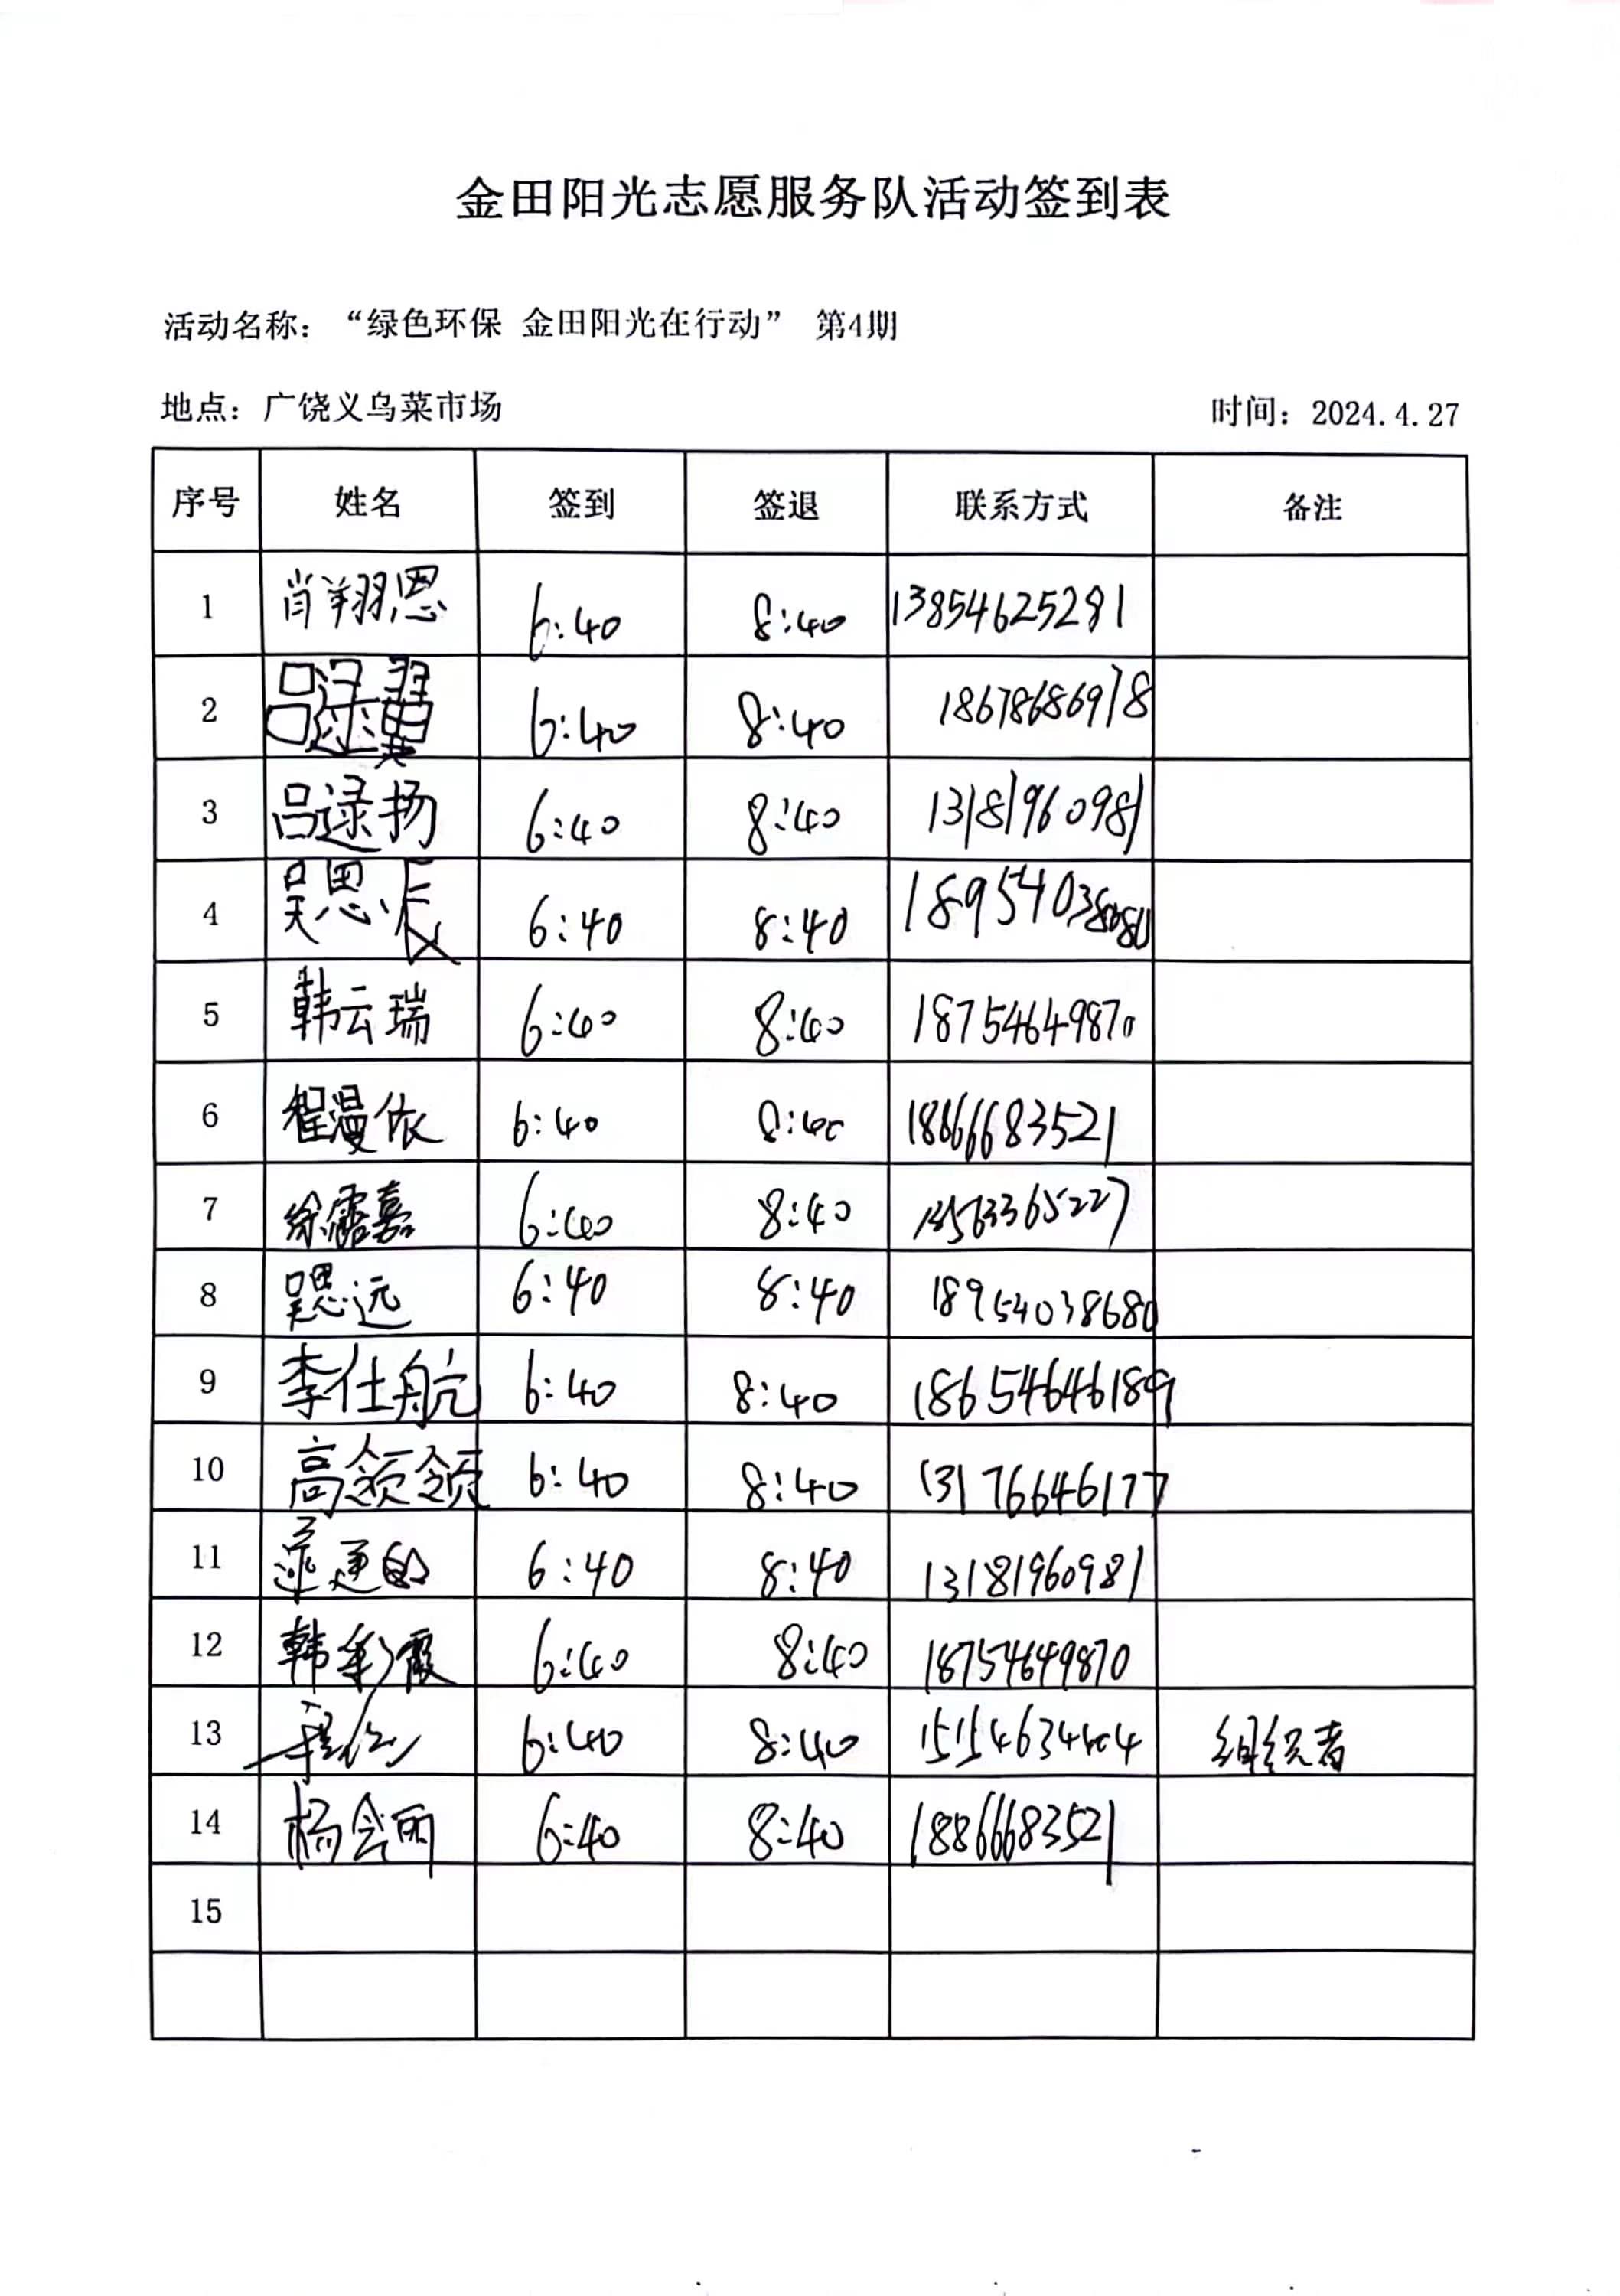 金田阳光志愿服务队活动签到表
活动名称：“绿色环保 金田阳光在行动” 第4期
地点：广饶义乌菜市场 时间：2024.4.27
序号 姓名 签到 签退 联系方式 备注
1 肖翔恩 6:40 8:40 13854625281
2 吕逯翼 6:40 8:40 18678686978
3 吕逯扬 6:40 8:40 13181960981
4 吴思辰 6:40 8:40
5 韩云瑞 6:40 8:40 18754649870
6 程漫依 6:40 8:40 18866683521
7 徐露嘉 6:40 8:40 13563365227
8 吴思远 6:40 8:40 18954038680
9 李仕航 6:40 8:40 18654646189
10 高领领 6:40 8:40 13176646177
11 6:40 8:40 13181960981
12 韩彩霞 6:40 8:40 18754649870
13 6:40 8:40 15154634404 组织者
14 杨会丽 6:40 8:40 18866683521
15